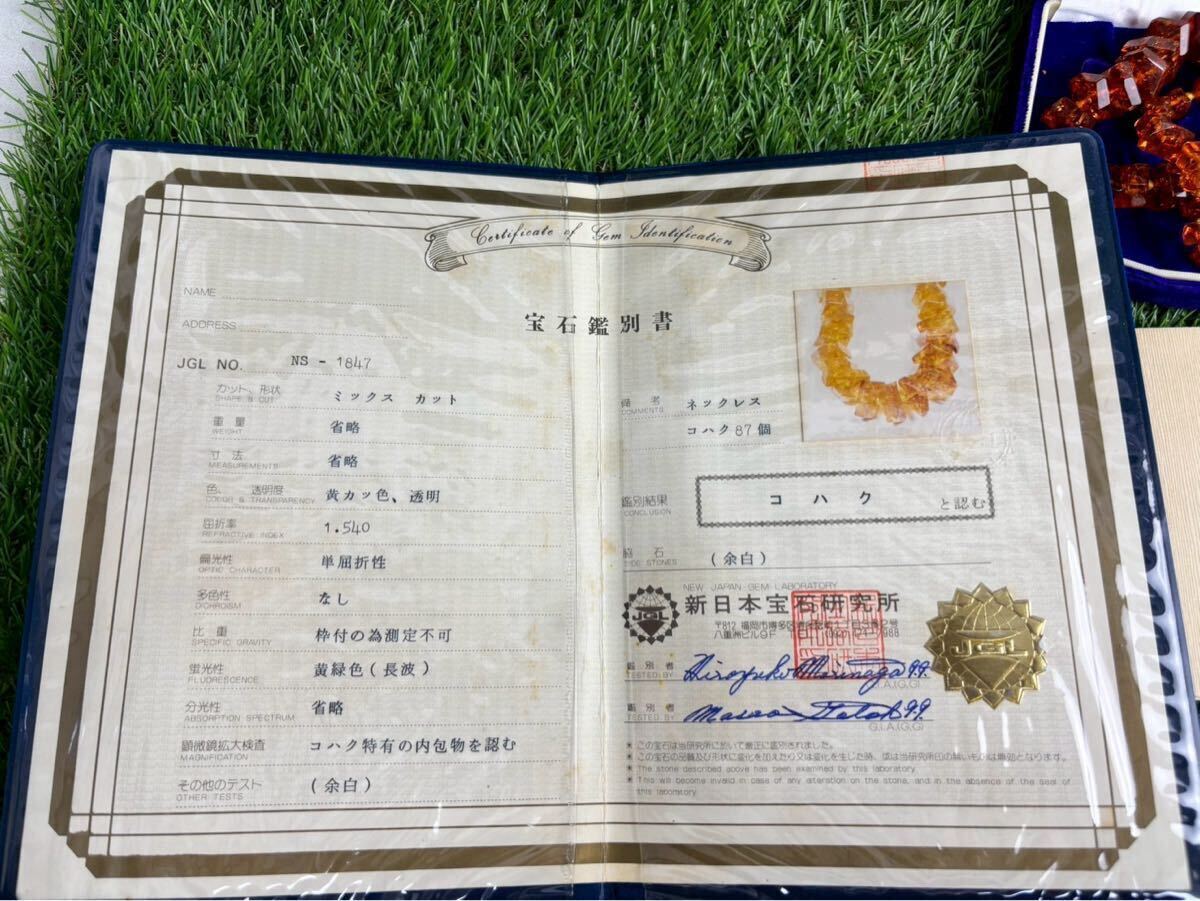 Certificate of Gem Identification
宝石鑑別書
NAME
ADDRESS
JGL NO. NS - 1847
カット、形状 ミックス カット
SHAPE & CUT
重量 省略
WEIGHT
寸法 省略
MEASUREMENTS
色、透明度 黄カッ色、透明
COLOR & TRANSPARENCY
屈折率 1.540
REFRACTIVE INDEX
偏光性 単屈折性
OPTIC CHARACTER
多色性 なし
DICHROISM
比重 枠付の為測定不可
SPECIFIC GRAVITY
蛍光性 黄緑色(長波)
FLUORESCENCE
分光性 省略
ABSORPTION SPECTRUM
顕微鏡拡大検査 コハク特有の内包物を認む
MAGNIFICATION
その他のテスト (余白)
OTHER TESTS
備考 ネックレス
COMMENTS
コハク87個
鑑別結果 コハク と認む
CONCLUSION
脇石 (余白)
SIDE STONES
NEW JAPAN GEM LABORATORY
JGL 新日本宝石研究所
〒812 福岡市博多区
八重洲ビル9F
鑑別者
TESTED BY
G.I.A.(G.G)
鑑別者
TESTED BY
G.I.A.(G.G)
JGL
* この宝石は当研究所に於いて厳正に鑑別されました。
* この宝石の品質及び形状に変化を加えたり又は変化を生じた時、或は当研究所印の無いものは無効となります。
* The stone described above has been examined by this laboratory.
* This will become invalid in case of any alteration on the stone, and in the absence of the seal of
this laboratory.